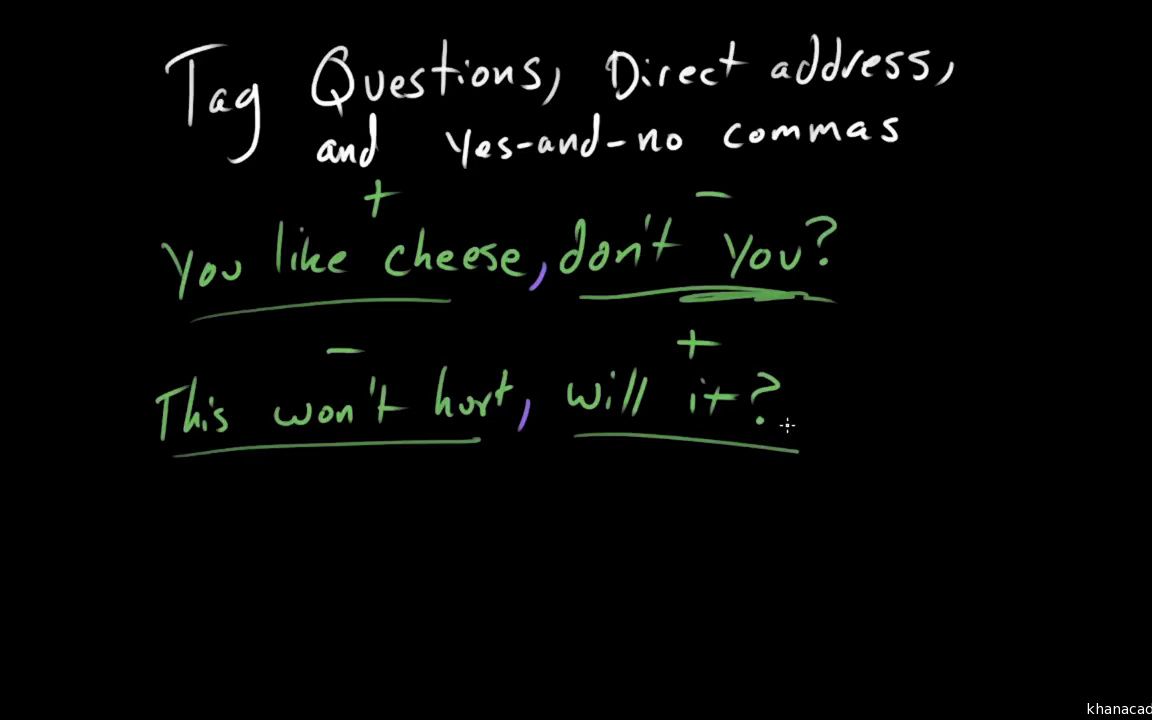 Tag Questions, Direct address,
and yes-and-no commas
+ −
You like cheese, don't you?
− +
This won't hurt, will it?
khanacad